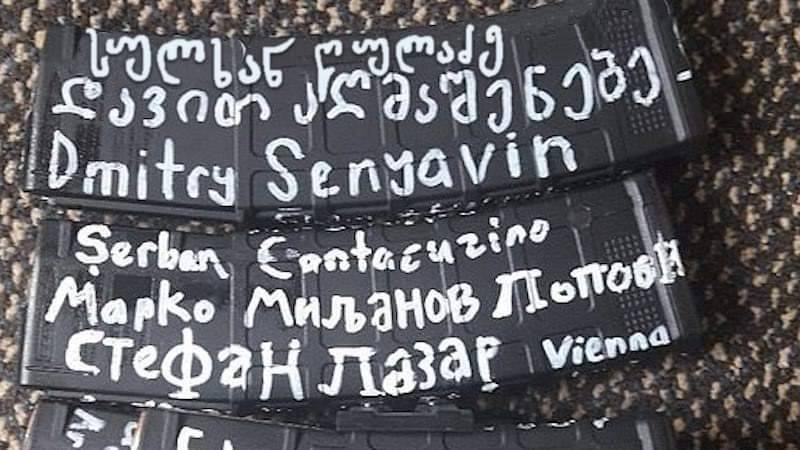 სულხან
დავით აღმაშენებე
Dmitry Senyavin
Șerban Cantacuzino
Марко Миљанов Попови
Стефан Лазар Vienna